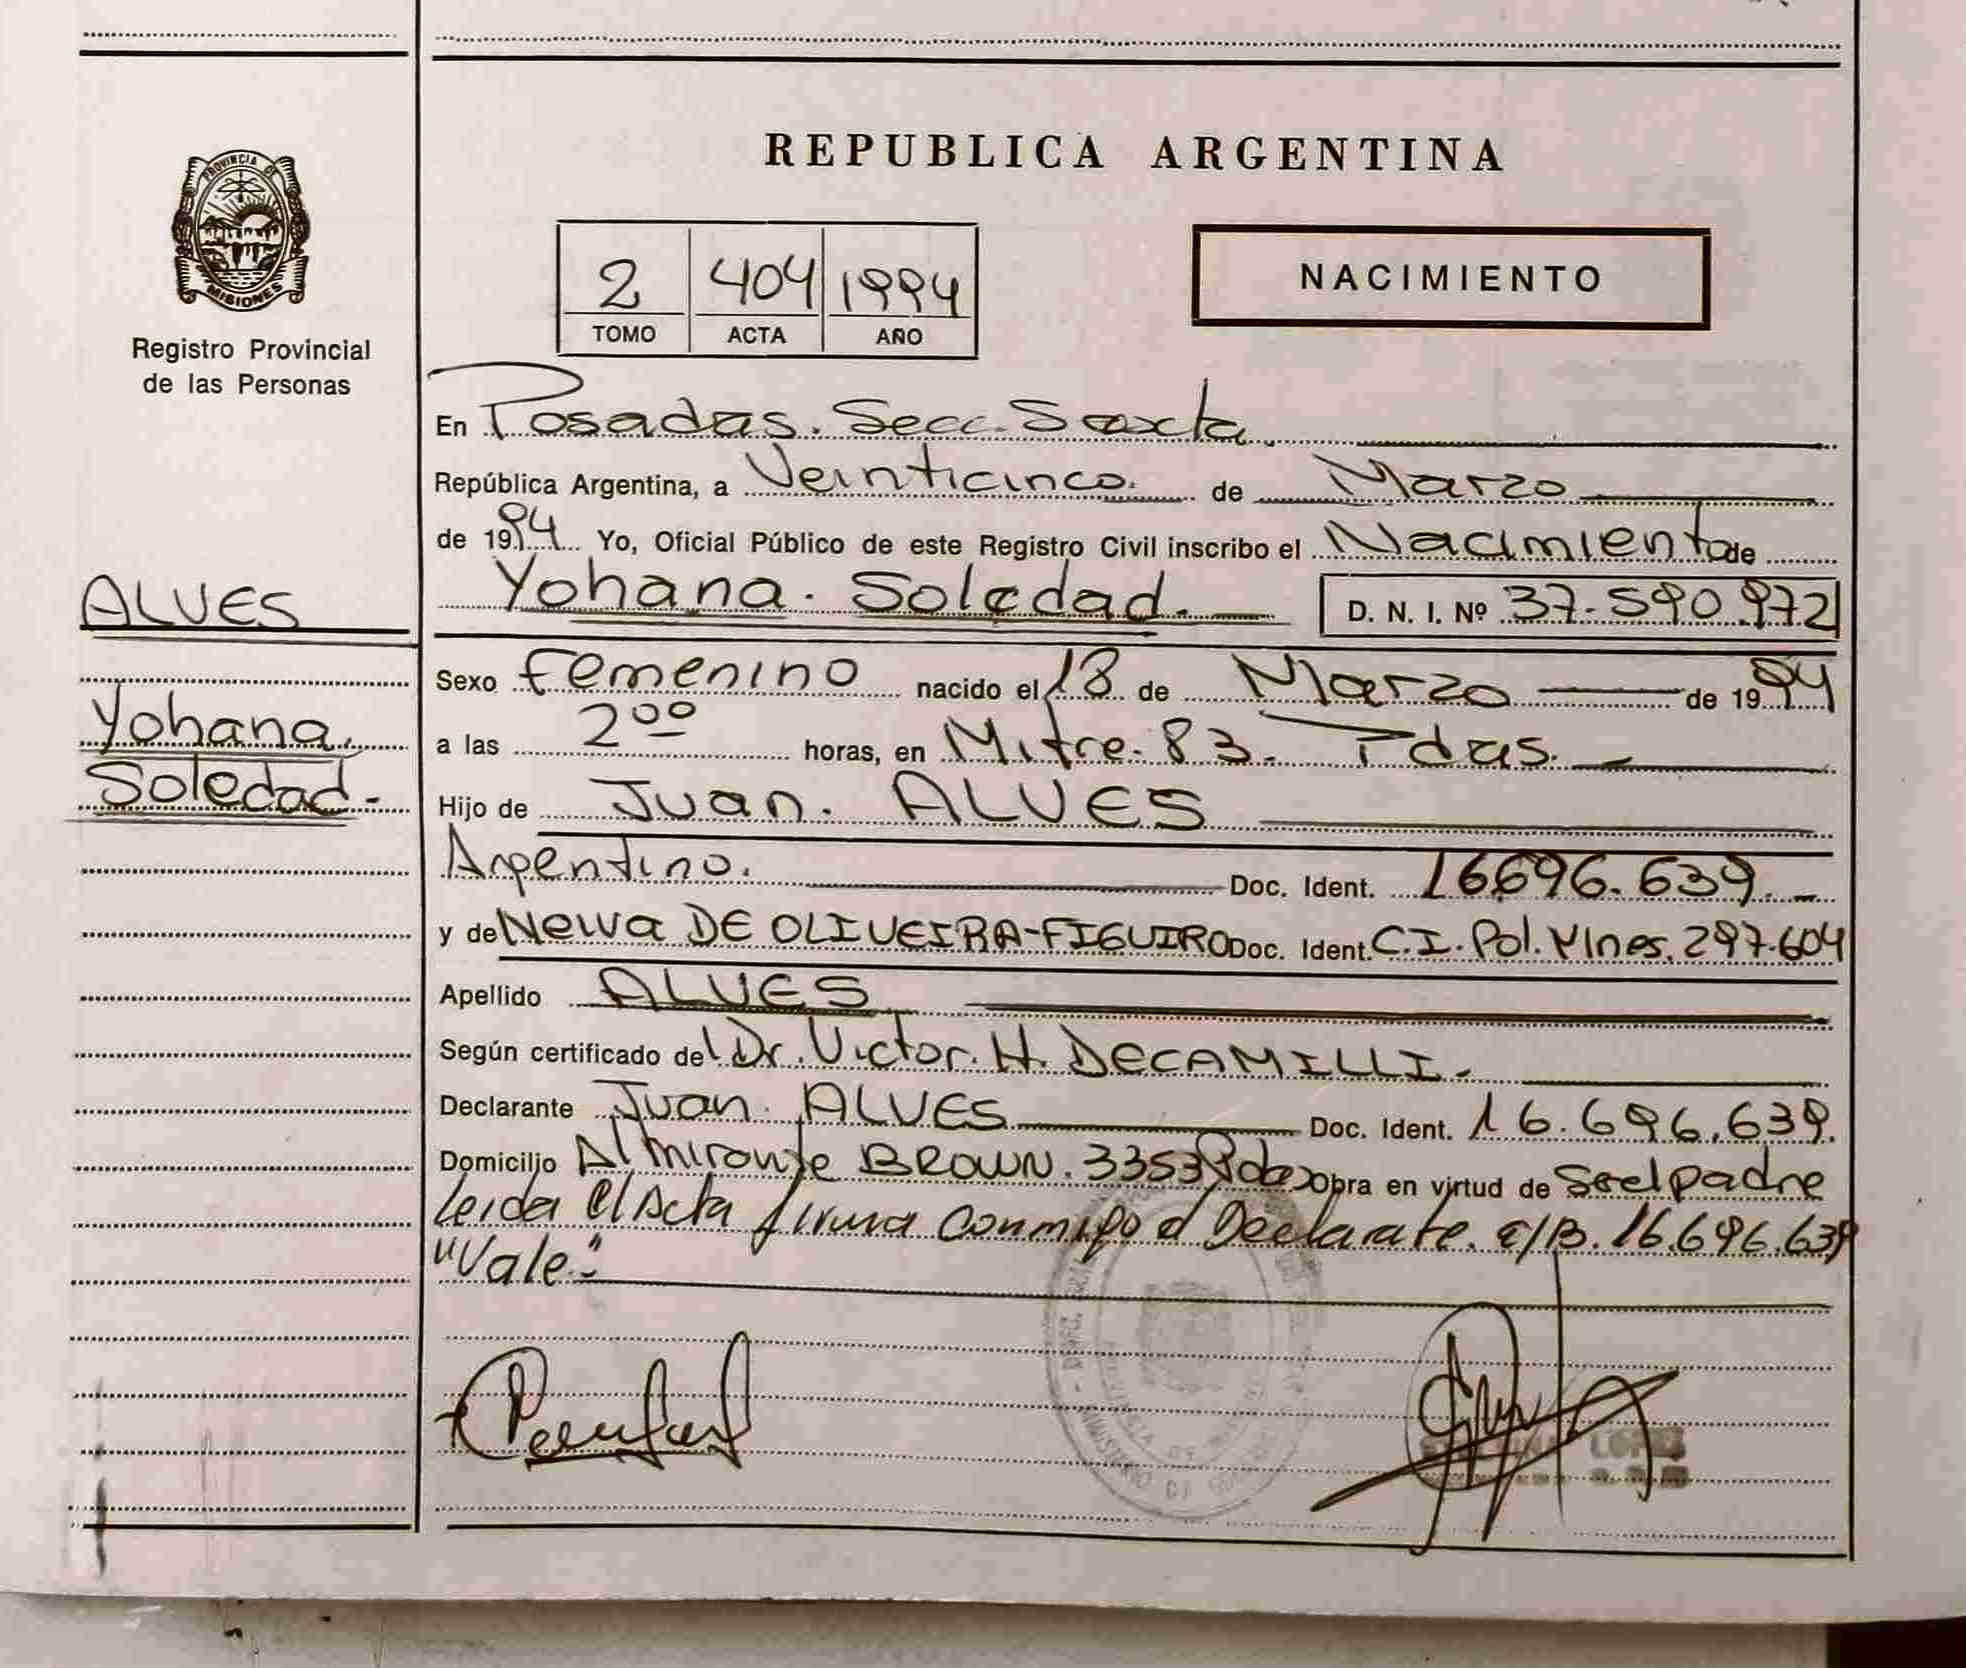 REPUBLICA ARGENTINA
PROVINCIA DE
MISIONES
Registro Provincial
de las Personas
2 404 1994
TOMO ACTA AÑO
NACIMIENTO
En Posadas. Secc. Sexta
República Argentina, a Veinticinco. de Marzo
de 1994 Yo, Oficial Público de este Registro Civil inscribo el Nacimiento de
Yohana. Soledad. D. N. I. Nº 37.590.972
ALVES
Yohana.
Soledad.
Sexo Femenino nacido el 18 de Marzo de 1994
a las 2ºº horas, en Mitre. 83. Pdas.
Hijo de Juan. ALVES
Argentino. Doc. Ident. 16696.639.
y de DE OLIVEIRA-FIGUIRO Doc. Ident. C.I. Pol. Mnes. 297.604
Apellido ALVES
Según certificado del Dr. Victor. H. DECAMILLI.
Declarante Juan. ALVES Doc. Ident. 16.696.639.
Domicilio Almirante BROWN. 3353 Pdas Obra en virtud de Ser el padre
Leida el Acta firma conmigo el Declarate. e/B. 16.696.639
"Vale"
LOPEZ